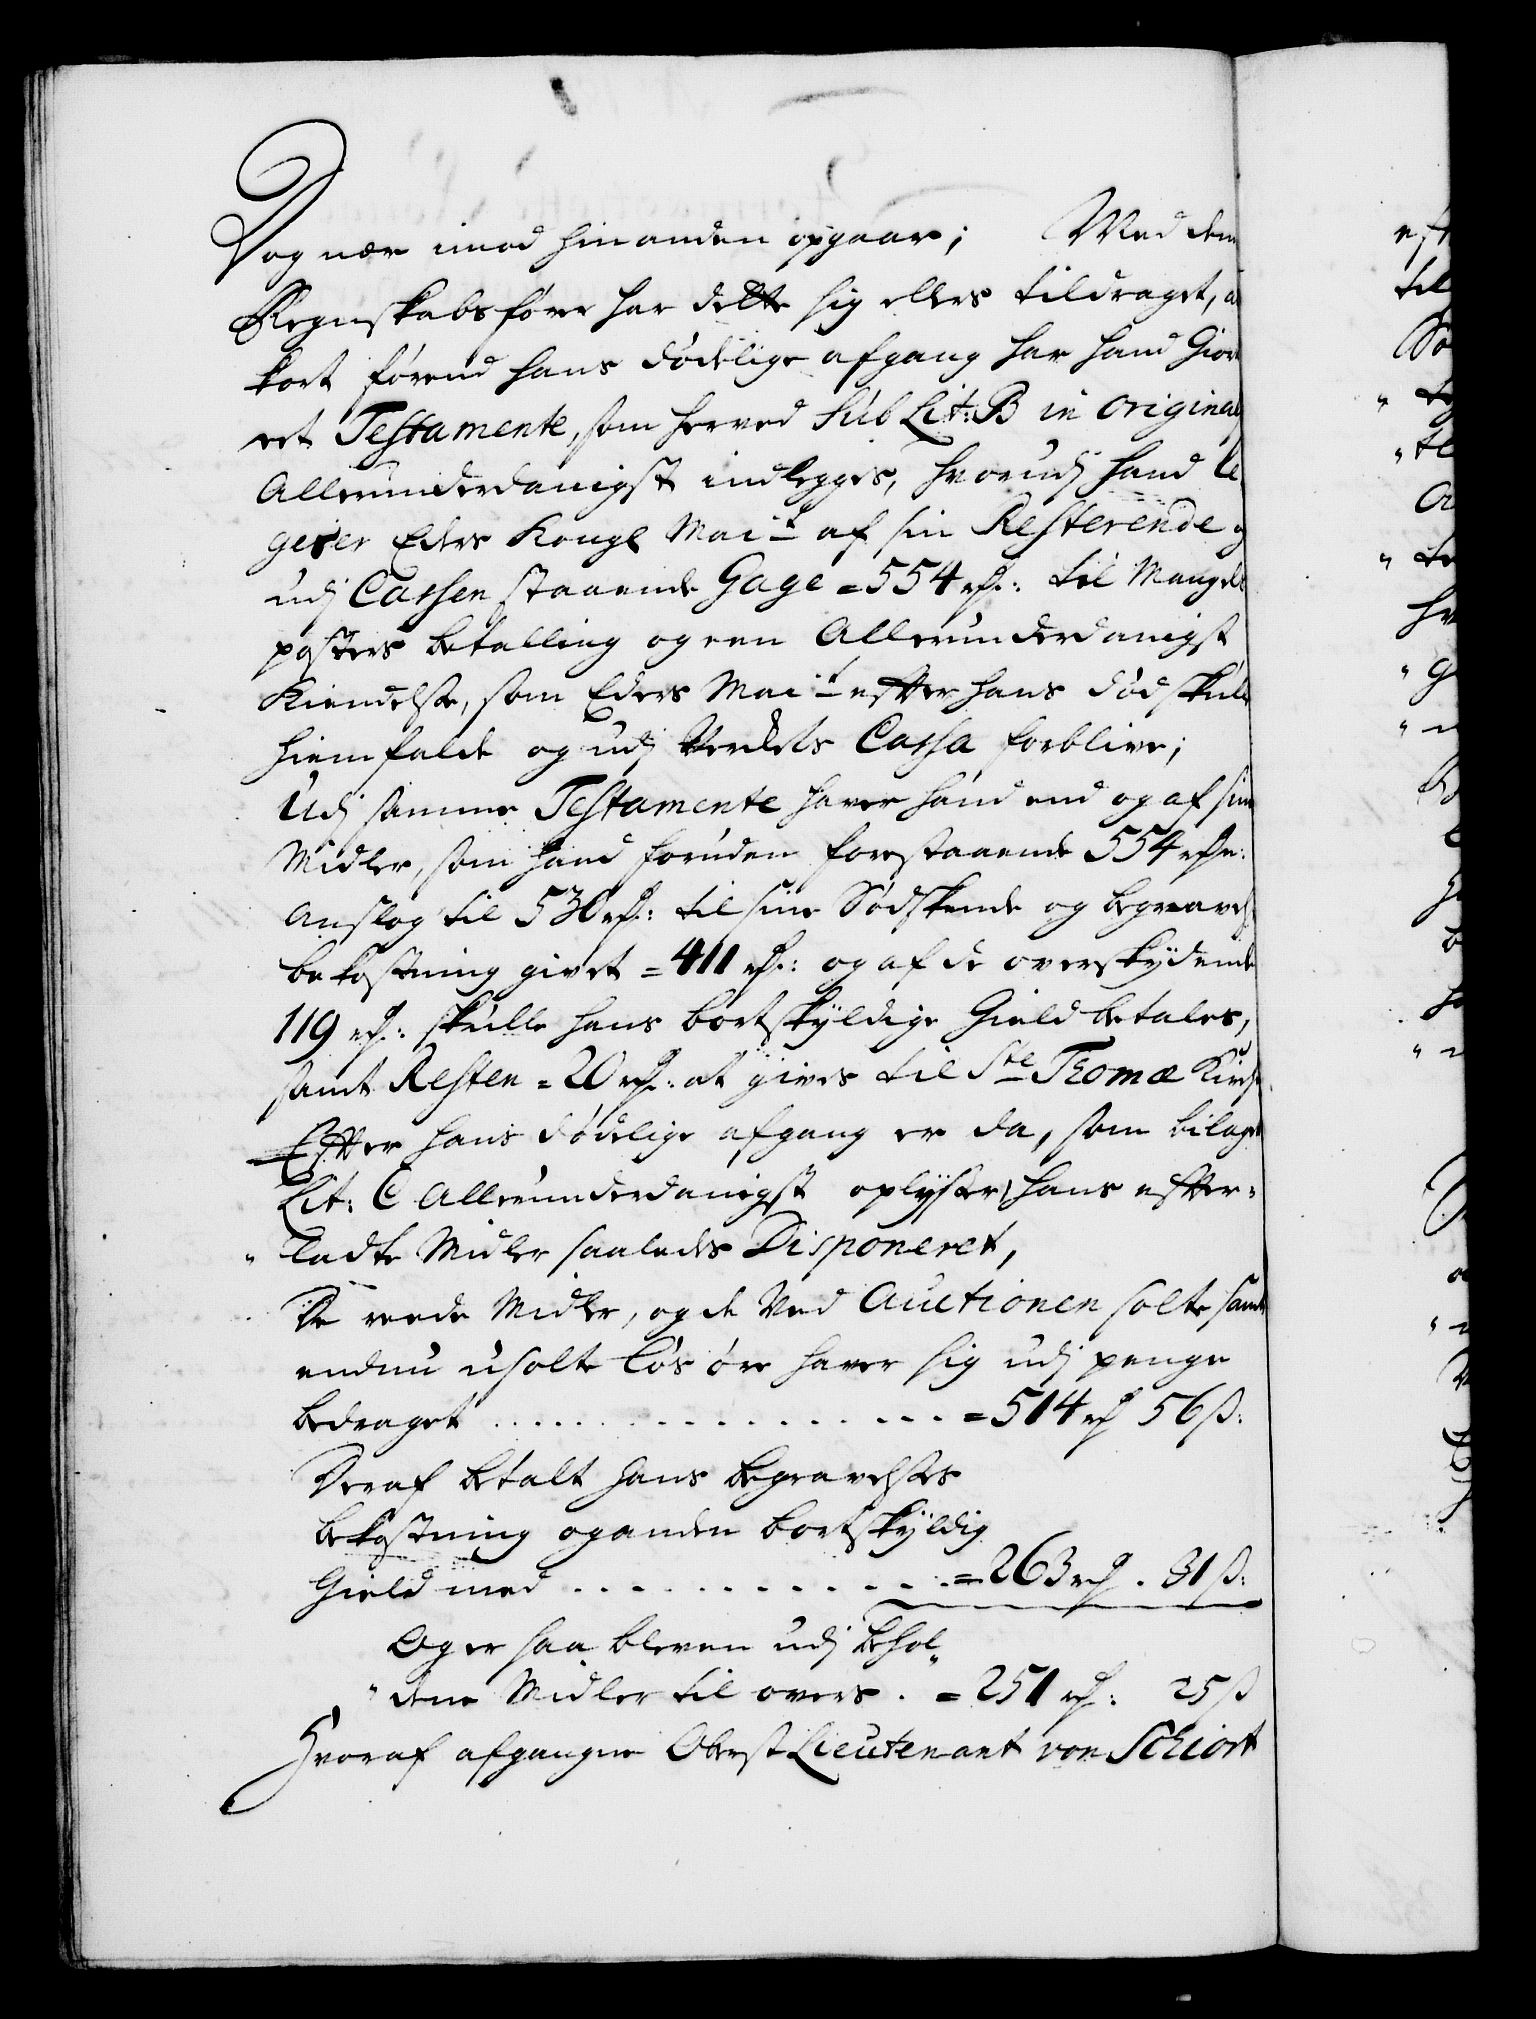 Dog nær imod hinanden opgaar; Med den
Regnskabsfører har dette sig ellers tildraget, a
kort førend hans dødelige afgang har hand Gior
ert Testamente, som herved Sub Lit: B in original
Allerunderdanigst indlegges, hvorudj hand le
gerer Eders Kongl Mai:t af sin Resterende o
udj Cassen staaende Gage = 554 rd.: til Mangels
posters betalling og een Allerunderdanigst
Kiendelse, som Eders Mai:t efter hans død skulle
hiemfalde og udj Verkets Cassa forblive;
Udj samme Testamente haver hand end og af sine
Midler, som hand foruden forestaaende 554 rdr:
anslog til 530 rd.: til sine Sødskende og begravels
bekostning givet = 411 rd.: og af de overskydende
119 rd.: skulle hans bortskyldige Gield betales,
samt Resten = 20 rd.: at gives til Ste Thomæ Kirche
Efter hans dødelige afgang er da, som bilaget
Lit: C Allerunderdanigst oplyser, hans efter=
" ladte Midler saaledes Disponeret,
De reede Midler, og de Ved Auctionen solte samt
endnu usolte løs øre haver sig udj penge
bedraget . . . . . . . . . . . . = 514 rd 56 ß:
Deraf betalt hans begravelses
bekostning og anden bortskyldig
Gield med . . . . . . . . . . = 263 rd . 31 ß:
Og er saa bleven udj behol„
" dene Midler til overs . = 251 rd: 25 ß
Hvoraf afgangne Oberst Lieutenant von Schiort